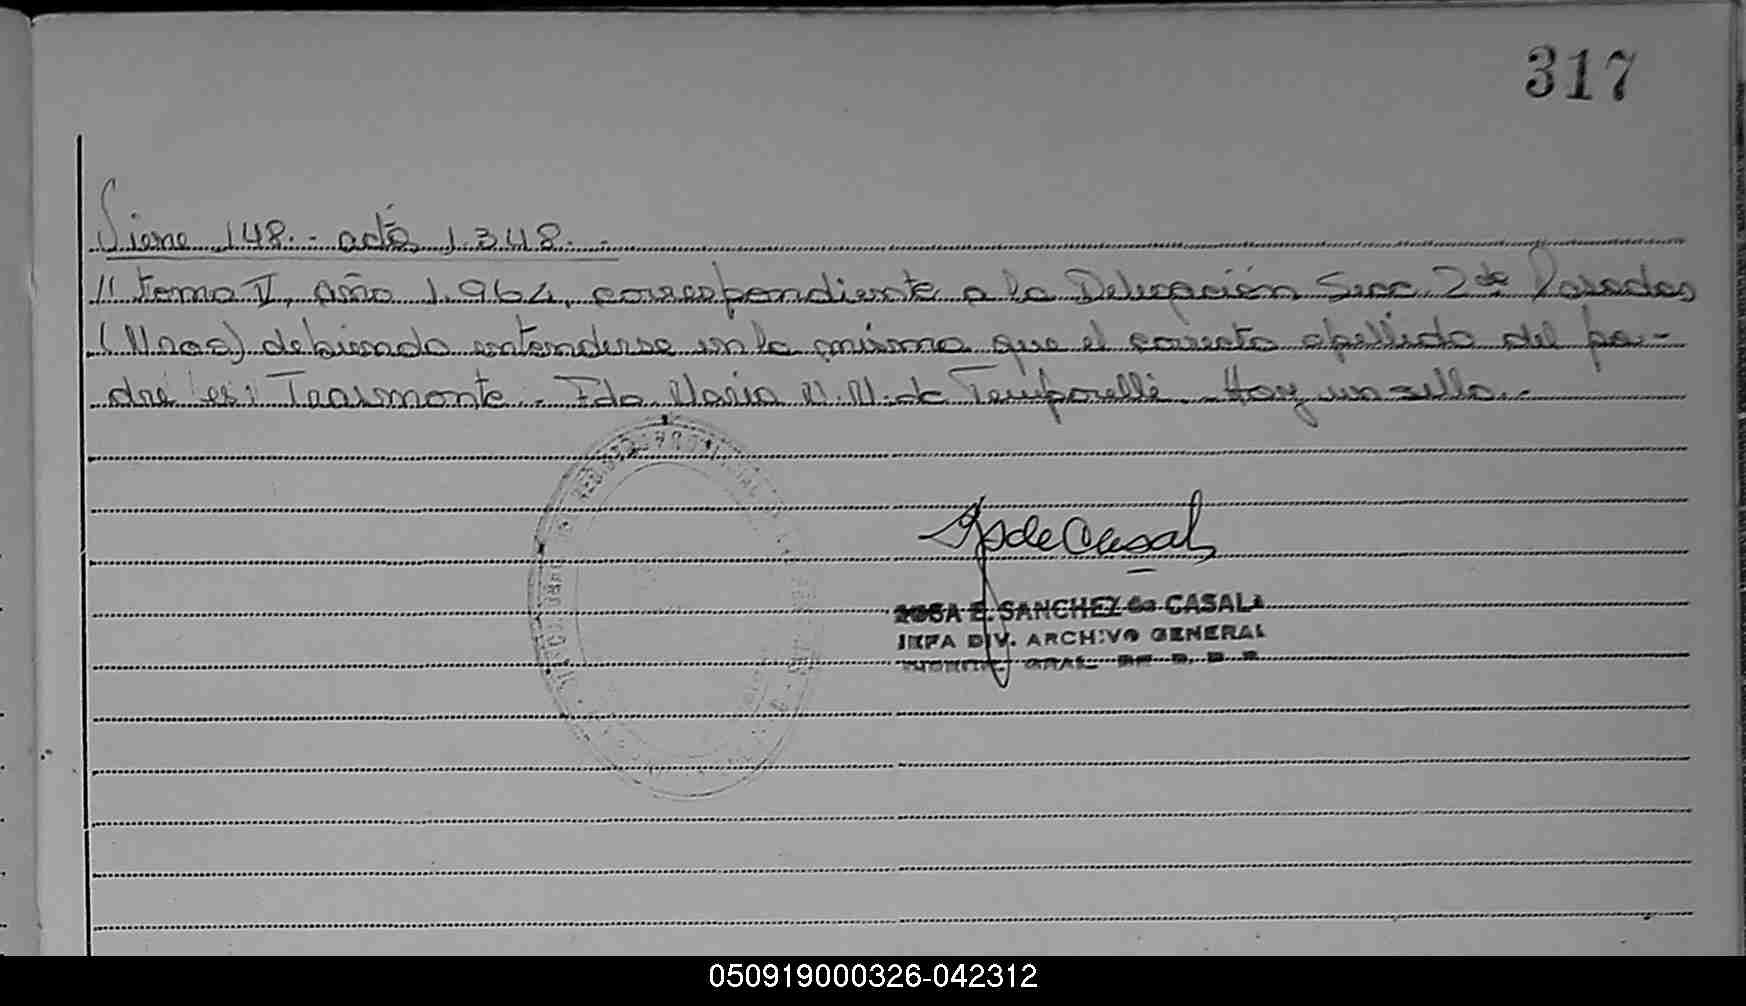 317
Siene 148.- actã 1.348.-
// tomo V, año 1.964, correspondiente a la Delegación Secc. 2da Posadas
(Mnes) debiendo entenderse en la misma que el correcto apellido del pa-
dre es: Trasmonte.- Fdo. María N. M. de Temporelli.- Hay un sello.-
REGISTRO PROVINCIAL DE LAS
de Casal
E. SANCHEZ de CASALA
JEFA DIV. ARCHIVO GENERAL
GRAL. DE R. D. P.
050919000326-042312